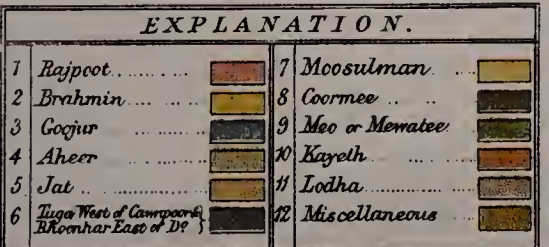 EXPLANATION.
1 Rajpoot
2 Brahmin
3 Goojur
4 Aheer
5 Jat
6 Tuga West of Cawnpoor &
Bhoenhar East of Do
7 Moosulman
8 Coormee
9 Meo or Mewatee
10 Kayeth
11 Lodha
12 Miscellaneous